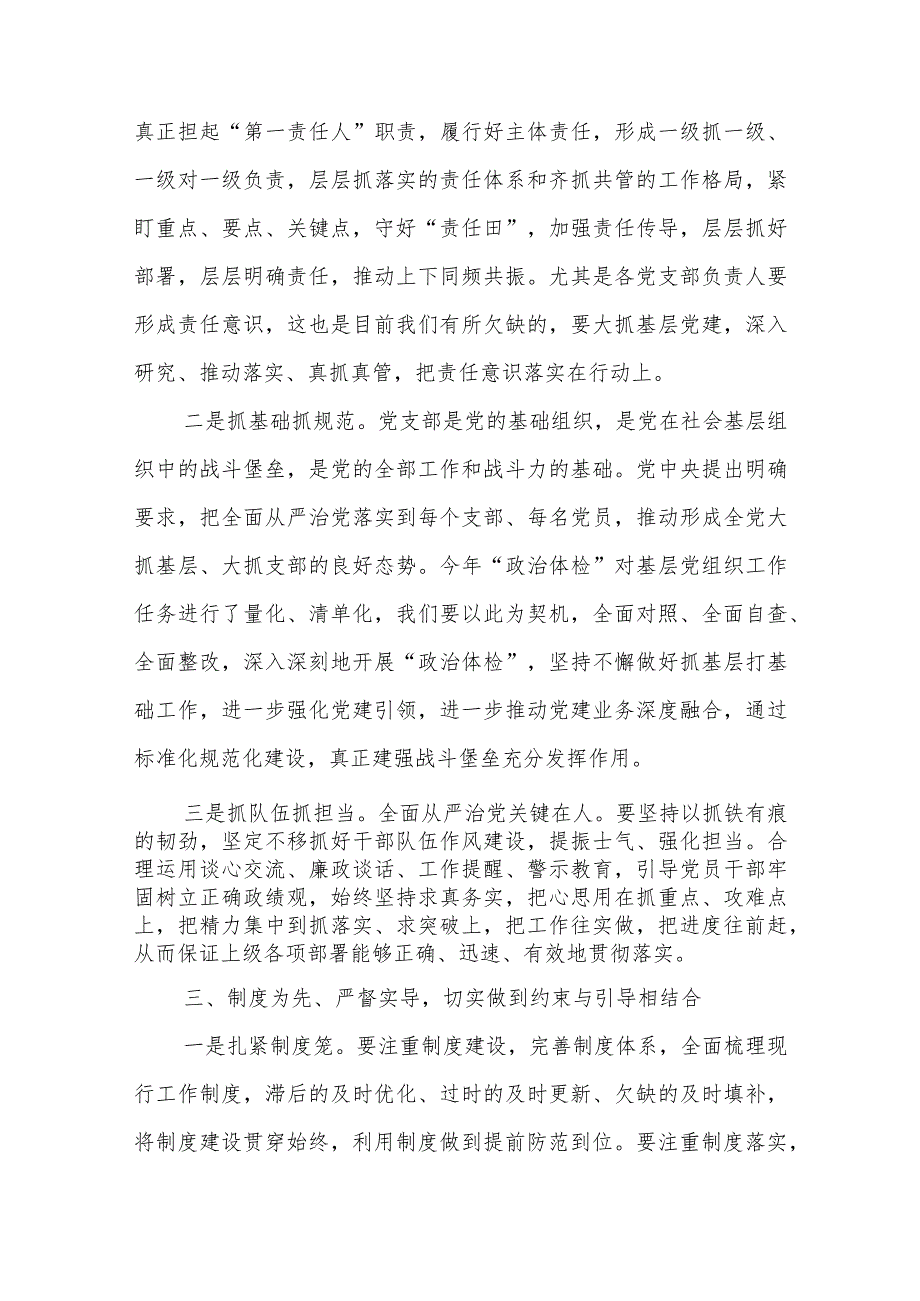 真正担起“第一责任人”职责，履行好主体责任，形成一级抓一级、
一级对一级负责，层层抓落实的责任体系和齐抓共管的工作格局，紧
盯重点、要点、关键点，守好“责任田”，加强责任传导，层层抓好
部署，层层明确责任，推动上下同频共振。尤其是各党支部负责人要
形成责任意识，这也是目前我们有所欠缺的，要大抓基层党建，深入
研究、推动落实、真抓真管，把责任意识落实在行动上。
二是抓基础抓规范。党支部是党的基础组织，是党在社会基层组
织中的战斗堡垒，是党的全部工作和战斗力的基础。党中央提出明确
要求，把全面从严治党落实到每个支部、每名党员，推动形成全党大
抓基层、大抓支部的良好态势。今年“政治体检”对基层党组织工作
任务进行了量化、清单化，我们要以此为契机，全面对照、全面自查、
全面整改，深入深刻地开展“政治体检”，坚持不懈做好抓基层打基
础工作，进一步强化党建引领，进一步推动党建业务深度融合，通过
标准化规范化建设，真正建强战斗堡垒充分发挥作用。
三是抓队伍抓担当。全面从严治党关键在人。要坚持以抓铁有痕
的韧劲，坚定不移抓好干部队伍作风建设，提振士气、强化担当。合
理运用谈心交流、廉政谈话、工作提醒、警示教育，引导党员干部牢
固树立正确政绩观，始终坚持求真务实，把心思用在抓重点、攻难点
上，把精力集中到抓落实、求突破上，把工作往实做，把进度往前赶，
从而保证上级各项部署能够正确、迅速、有效地贯彻落实。
三、制度为先、严督实导，切实做到约束与引导相结合
一是扎紧制度笼。要注重制度建设，完善制度体系，全面梳理现
行工作制度，滞后的及时优化、过时的及时更新、欠缺的及时填补，
将制度建设贯穿始终，利用制度做到提前防范到位。要注重制度落实，